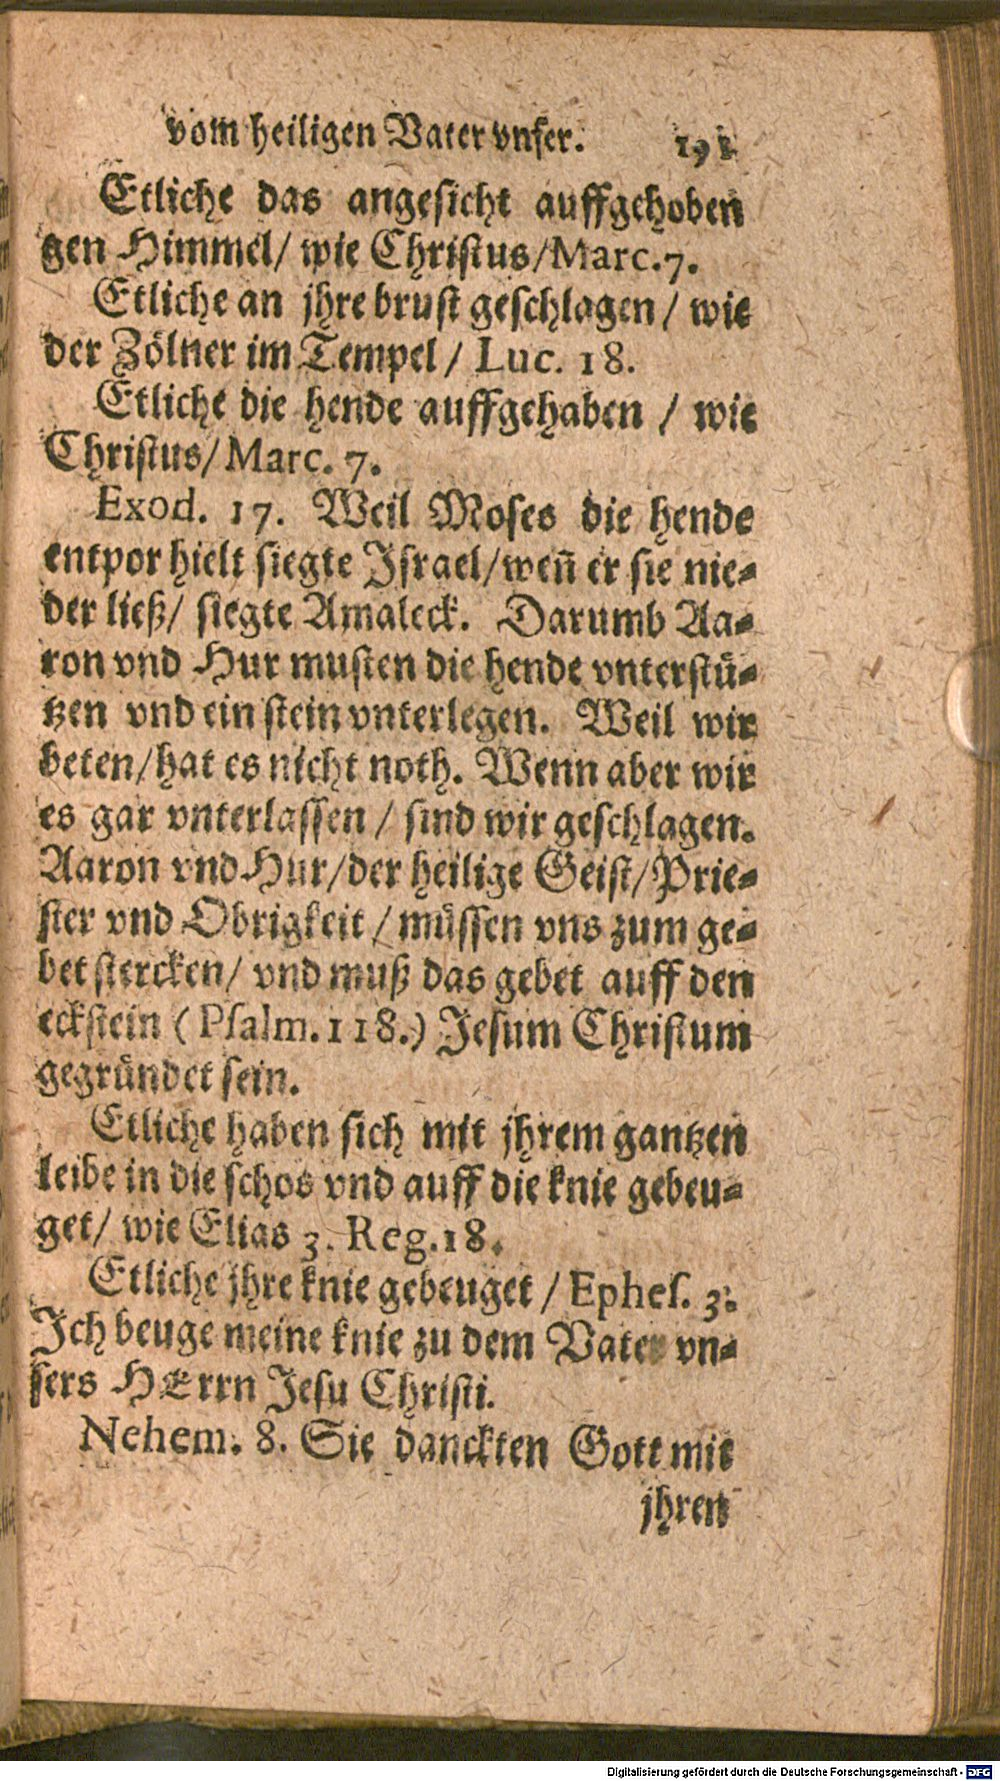 vom heiligen Vater vnser. 191
Etliche das angesicht auffgehoben
gen Himmel/ wie Christus/Marc.7.
Etliche an jhre brust geschlagen / wie
der Zölner im Tempel / Luc. 18.
Etliche die hende auffgehaben / wie
Christus/ Marc. 7.
Exod. 17. Weil Moses die hende
entpor hielt siegte Israel/weñ er sie nie-
der ließ/ siegte Amaleck. Darumb Aa-
ron vnd Hur musten die hende vnterstü-
tzen vnd ein stein vnterlegen. Weil wir
beten/hat es nicht noth. Wenn aber wir
es gar vnterlassen / sind wir geschlagen.
Aaron vnd Hur/der heilige Geist/Prie-
ster vnd Obrigkeit / müssen vns zum ge-
bet stercken/ vnd muß das gebet auff den
eckstein (Psalm.118.) Jesum Christum
gegründet sein.
Etliche haben sich mit jhrem gantzen
leibe in die schos vnd auff die knie gebeu-
get/ wie Elias 3. Reg.18.
Etliche jhre knie gebeuget / Ephes. 3.
Ich beuge meine knie zu dem Vater vn-
sers HErrn Jesu Christi.
Nehem. 8. Sie danckten Gott mit
jhren
Digitalisierung gefördert durch die Deutsche Forschungsgemeinschaft - DFG